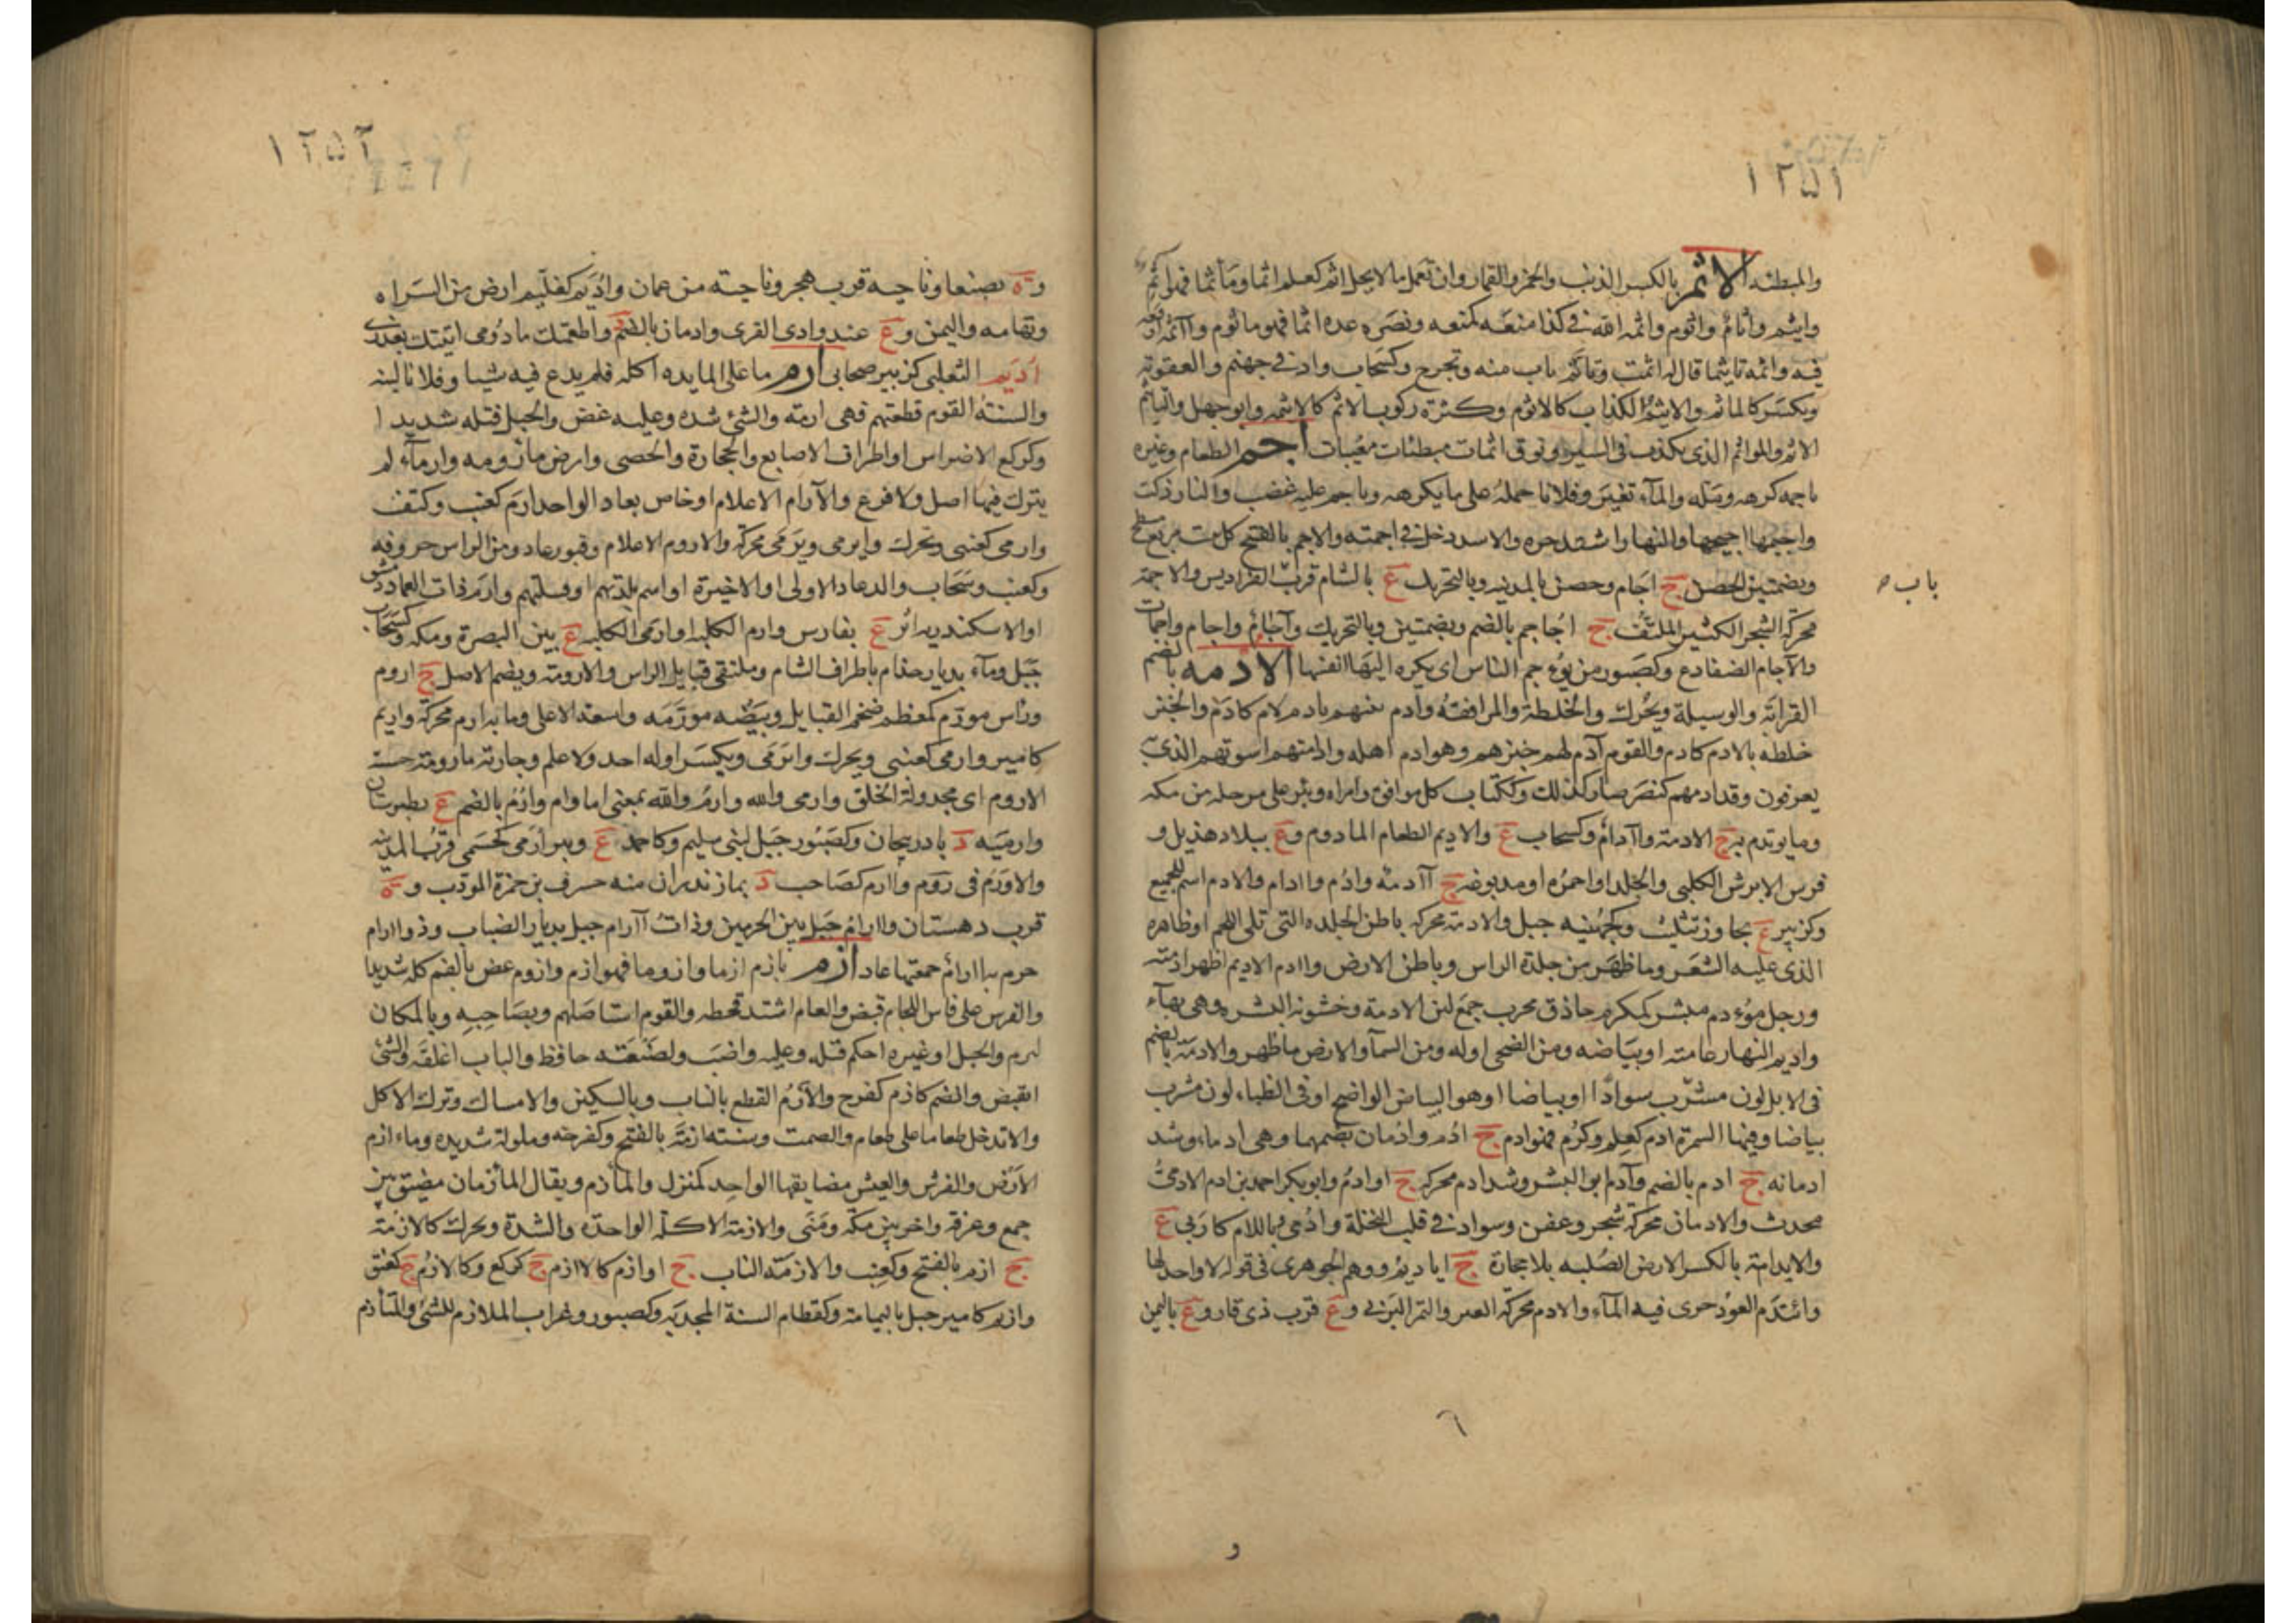 ١٢٥١
والمبطئه الاثم بالكسر الذنب والخمر والقمار وان تعمل مالا يحل اثم كعلم اثما ومأثما فهو آثم
واثيم وأثام واثوم واثمه الله في كذا منعه كمنعه ونصره عده اثما فهو ماثوم وآاثمه اوقعه
فيه واثمه تاثيما قال له اثمت وتاثم تاب منه وتحرج وكسحاب واد في جهنم والعقوبة
ويكسر كالماثم والاثيم الكذاب كالاثوم وكثرة ركوب الاثم كالاثيمه وابو جهل والتاثيم
الاثم والمواثم الذى يكذب فى السير ونوق اثمات مبطئات معيبات اجم الطعام وغيره
ياجمه كرهه ومله والمآء تغير وفلانا حمله على ما يكرهه وتاجم عليه غضب والنار ذكت
واججمها اجيجها والنهار اشتد حره والاسد دخل في اجمته والاجم بالفتح كل بيت مربع مسطح
وبضمتين الحصن ج اجام وحصن بالمدينه وبالتحريك ع بالشام قرب الفراديس والاجمة
باب
محركة الشجر الكثير الملتف ج اجاجم بالضم وبضمتين وبالتحريك وآجام واجام واجمات
والآجام الضفادع وكصبور من يؤجم الناس اى يكره اليها انفسها الادمه بالضم
القرابة والوسيلة ويحرك والخلطة والموافقة وأدم بينهم يادم لام كادم والخبز
خلطه بالادم كادم والقوم آدم لهم خبزهم وهو ادم اهله وادمتهم اسوتهم الذى
يعرفون وقد ادمهم كنصر صار كذلك وككتاب كل موافق وامراه وبئر على مرحله من مكه
وما يوتدم به ج الادمة واآدام وكسحاب ع والاديم الطعام المادوم وع ببلاد هذيل و
فرس الابرش الكلبي والجلد او احمره او مدبوغه ج آادمة وادم وادام والادم اسم للجميع
وكزبير ع يجاوز تثليث وكجهينه جبل والادمة محركه باطن الجلده التى تلى اللحم او ظاهره
الذى عليه الشعر وما ظهر من جلدة الراس وباطن الارض واادم الاديم اظهر ادمته
ورجل مؤدم مبشر كمكرم حاذق مجرب جمع لين الادمة وخشونه البشره وهى بهآء
واديم النهار عامته او بياضه ومن الضحى اوله ومن السمآ والارض ما ظهر والادمة بالضم
فى الابل لون مشرب سوادا او بياضا او هو البياض الواضح او فى الظباء لون مشرب
بياضا وفينا السمرة ادم كعلم وكرم فهو ادم ج ادم وادمان بضمهما وهى ادماء وشذ
ادمانه ج ادم بالضم وآدم ابو البشر وشذ ادم محركه ج اوادم وابو بكر احمد بن ادم الادمى
محدث والادمان محركة شجر وعفن وسواد في قلب النخلة وادمى باللام كاربى ع
والايدامة بالكسر الارض الصلبه بلا حجارة ج اياديم ووهم الجوهرى فى قوله لا واحد لها
وائتدم العود جرى فيه المآء والادم محركة القبر والتمر البرنى وع قرب ذى قار وع باليمن
١٢٥٢
وة بصنعا وناحيه قرب هجر وناحية من عمان واديم كفليم ارض من السراه
وتهامه واليمن وع عند وادى القرى وادمان بالضم د واطعمتك مادومى اتيتك بعذرى
أديم الثعلبى كزبير صحابى أرم ما على المايده اكله فلم يدع فيه شيا وفلانا لينه
والسنة القوم قطعتهم فهى ارمة والشئ شده وعليه عض والحبل فتله شديدا
وكركع الاضراس او اطراف الاصابع والحجارة والحصى وارض مأرومه وارمآء لم
يترك فيها اصل ولا فرع والآرام الاعلام او خاص بعاد الواحد ارم كعنب وكتف
وارمى كعنبى ويحرك وايرمى ويرمى محركة والاروم الاعلام وقبور عاد ومن الراس حروفه
وكعنب وسحاب والد عاد الاولى او الاخيرة او اسم بلدتهم او قبيلتهم وارم ذات العماد دمشق
او الاسكندريه او ع بفارس وارم الكلبه او ارمى الكلبه ع بين البصرة ومكه وكسحاب
جبل ومآء بديار جذام باطراف الشام وملتقى قبايل الراس والارومة ويضم الاصل ج اروم
وراس مورم كمعظم ضخم القبايل وبيضه مورمه واسعة الاعلى وما به ارم محركة واريم
كامير وارمى كعنبى ويحرك وايرمى ويكسر اوله احد ولا علم وجارية مارومة حسنة
الاروم اى مجدولة الخلق وارمى والله وارم والله بمعنى اما وام وارم بالضم ع بطبرستان
وارميه د باذربيجان وكصبور جبل لبنى سليم وكاحمد ع وبير ارمى كحسمى قرب المدينه
والاورم فى روم واارم كصاحب د بمازندران منه حسرف بن حمزة المودب وة
قرب دهستان واارام جبل بين الحرمين وذات آارام جبل بديار الضباب وذو اارام
حزم به اارام جمعتها عاد أزم يازم ازما وازوما فهو ازم وازوم عض بالفم كله شديدا
والفرس على فاس اللجام قبض والعام اشتد قحطه والقوم استاصلهم وبصاحبه وبالمكان
لزم والحبل او غيره احكم فتله وعليه واضب ولضيعته حافظ والباب اغلقه والشئ
انقبض والضم كازم كفرح والأزم القطع بالناب وبالسكين والامساك وترك الاكل
والا تدخل طعاما على طعام والصمت وسنة ازمة بالفتح وكفرحه وملولة شديده وماء ازم
الارض والفرس والعيش مضايقها الواحد كمنزل والمأزم ويقال المأزمان مضيق بين
جمع وعرفه واخر بين مكه ومنى والازمة الاكلة الواحدة والشدة ويحرك كالازمة
ج ازم بالفتح وكعنب والازمة الناب ج اوازم كالاازم ج كركع وكالازم ج كعنق
وازم كامير جبل باليمامة وكقطام السنة المجدبه وكصبور وغراب الملازم للشئ والمتأزم